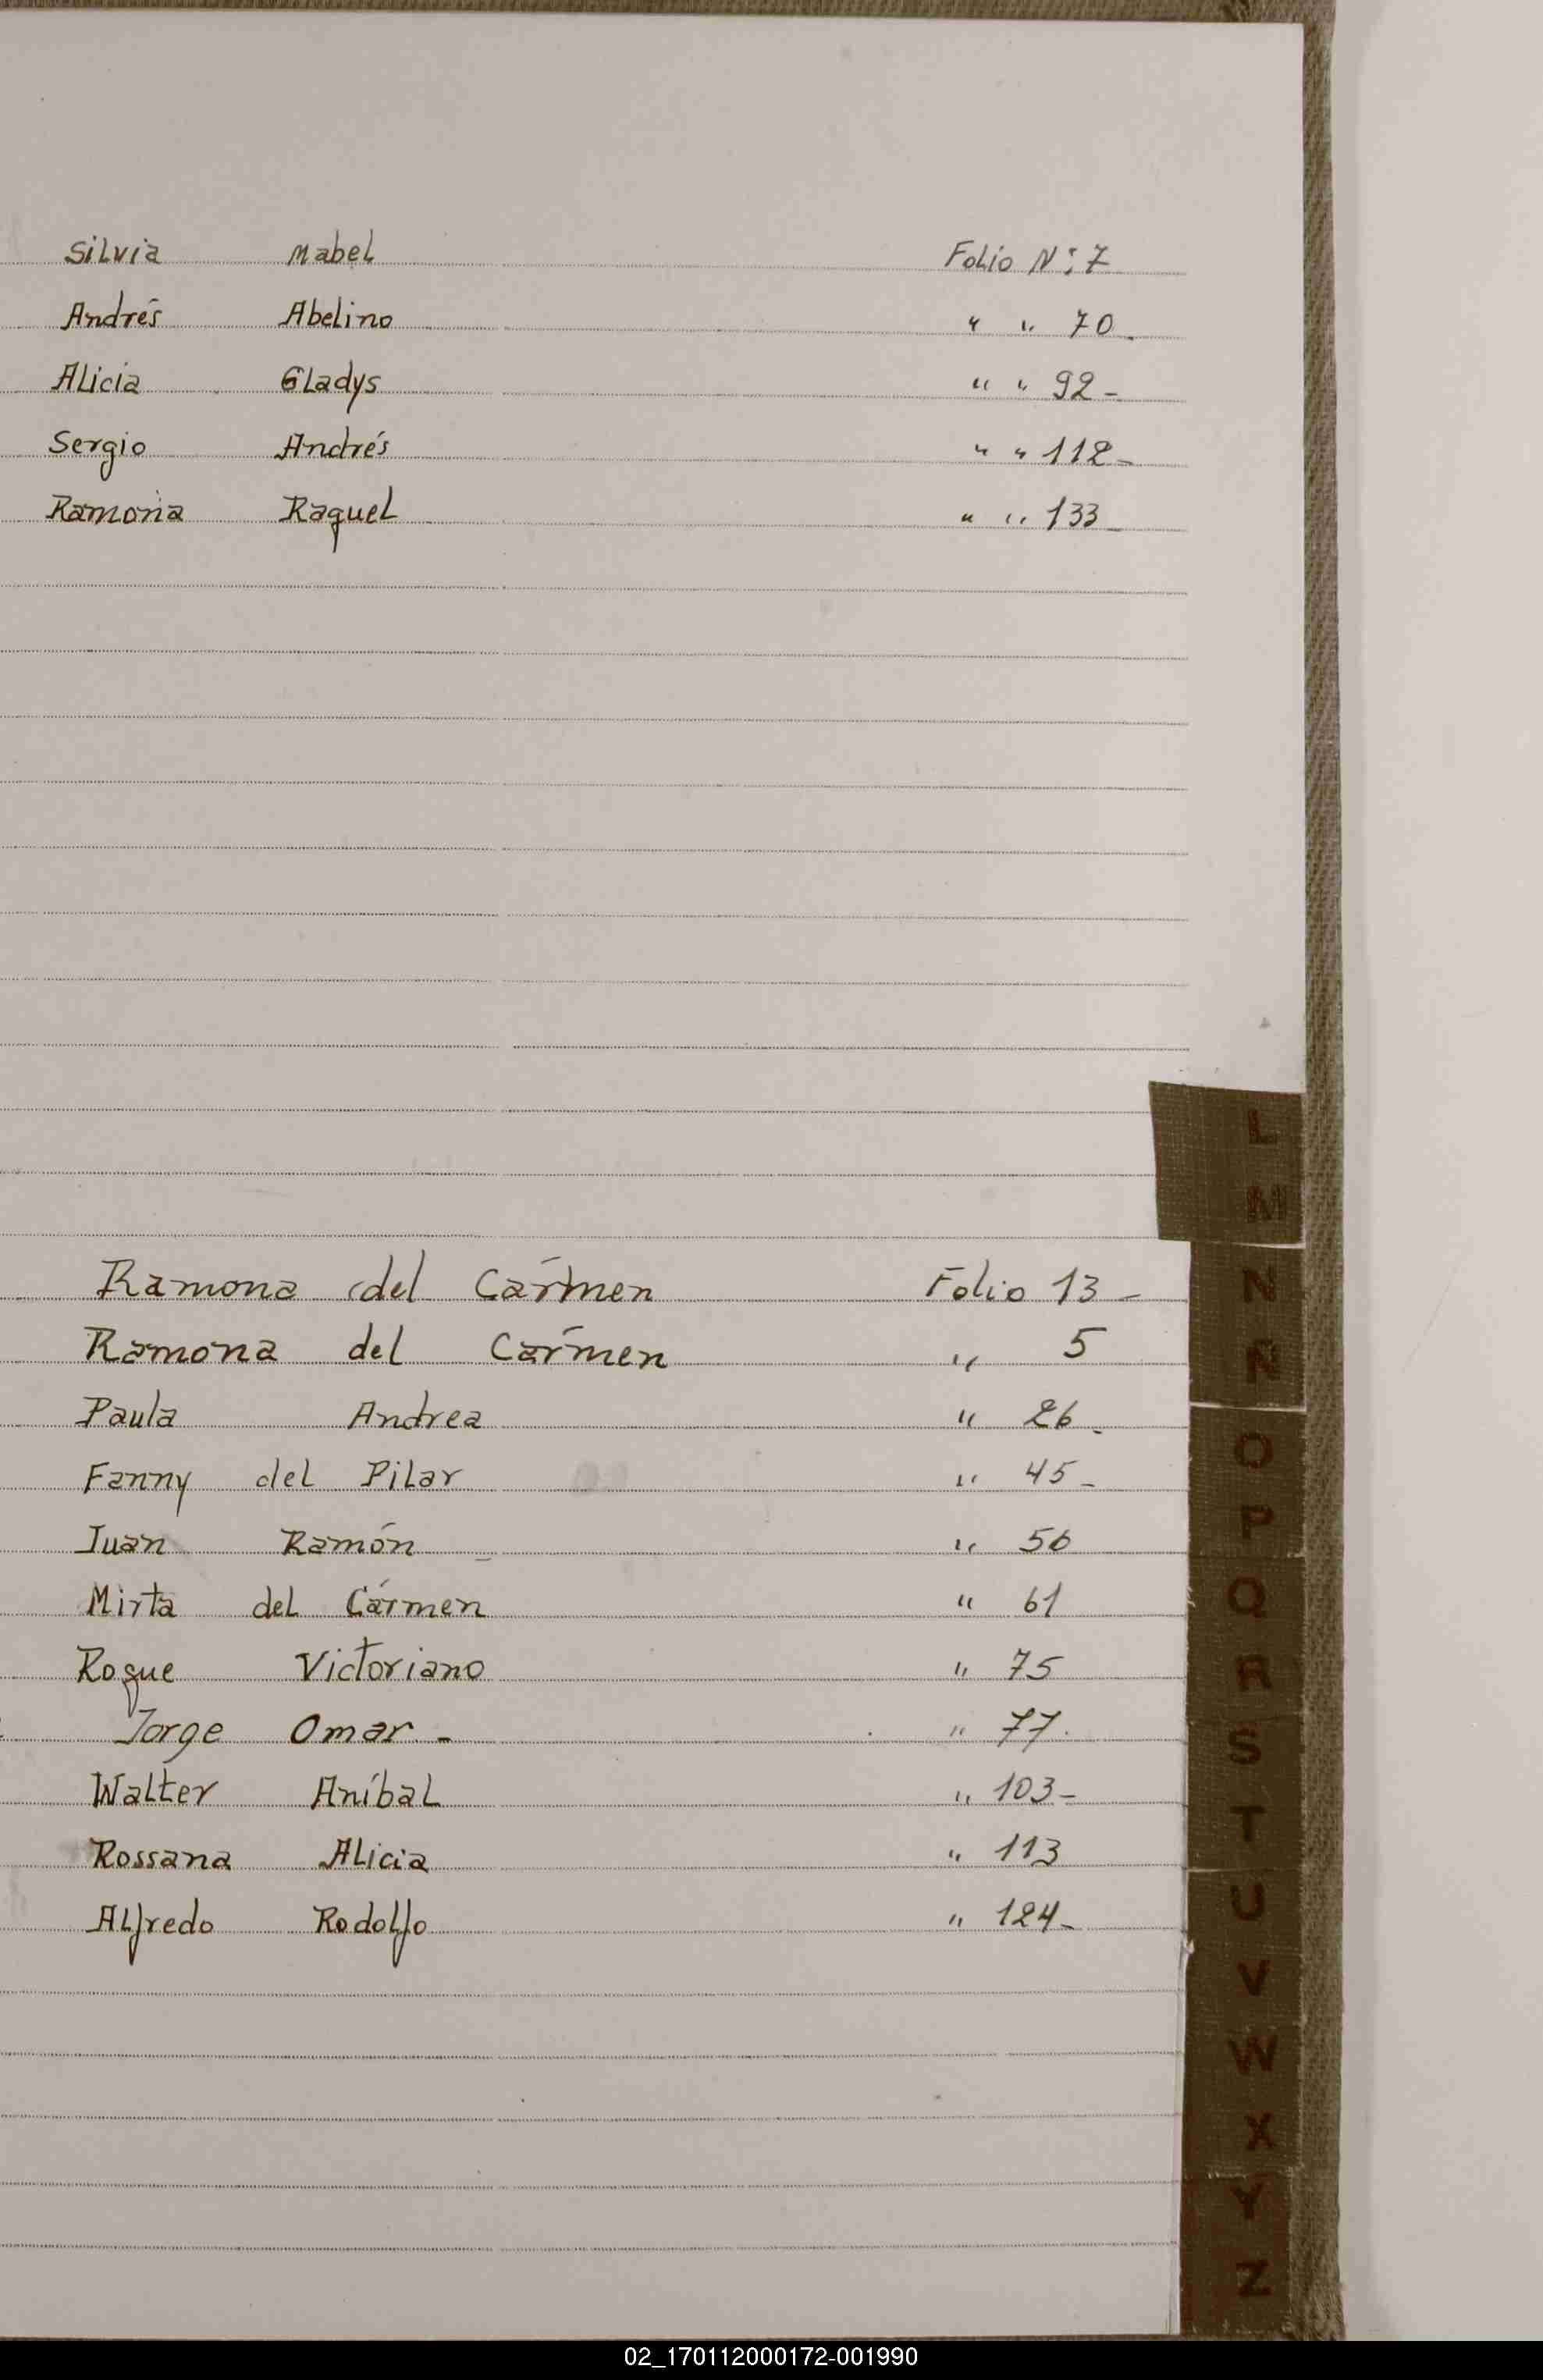 Silvia Mabel Folio N: 7
Andrés Abelino " " 70.
Alicia Gladys " " 92-
Sergio Andrés " " 112-
Ramona Raquel " " 133-
L
M
Ramona del Cármen Folio 13-
N
Ramona del Cármen " 5
Ñ
Paula Andrea " 26-
O
Fanny del Pilar " 45-
P
Juan Ramón " 50
Mirta del Cármen " 61
Q
Roque Victoriano " 75
R
Jorge Omar - " 77.
S
Walter Aníbal " 103-
T
Rossana Alicia " 113
U
Alfredo Rodolfo " 124-
V
W
X
Y
Z
02_170112000172-001990